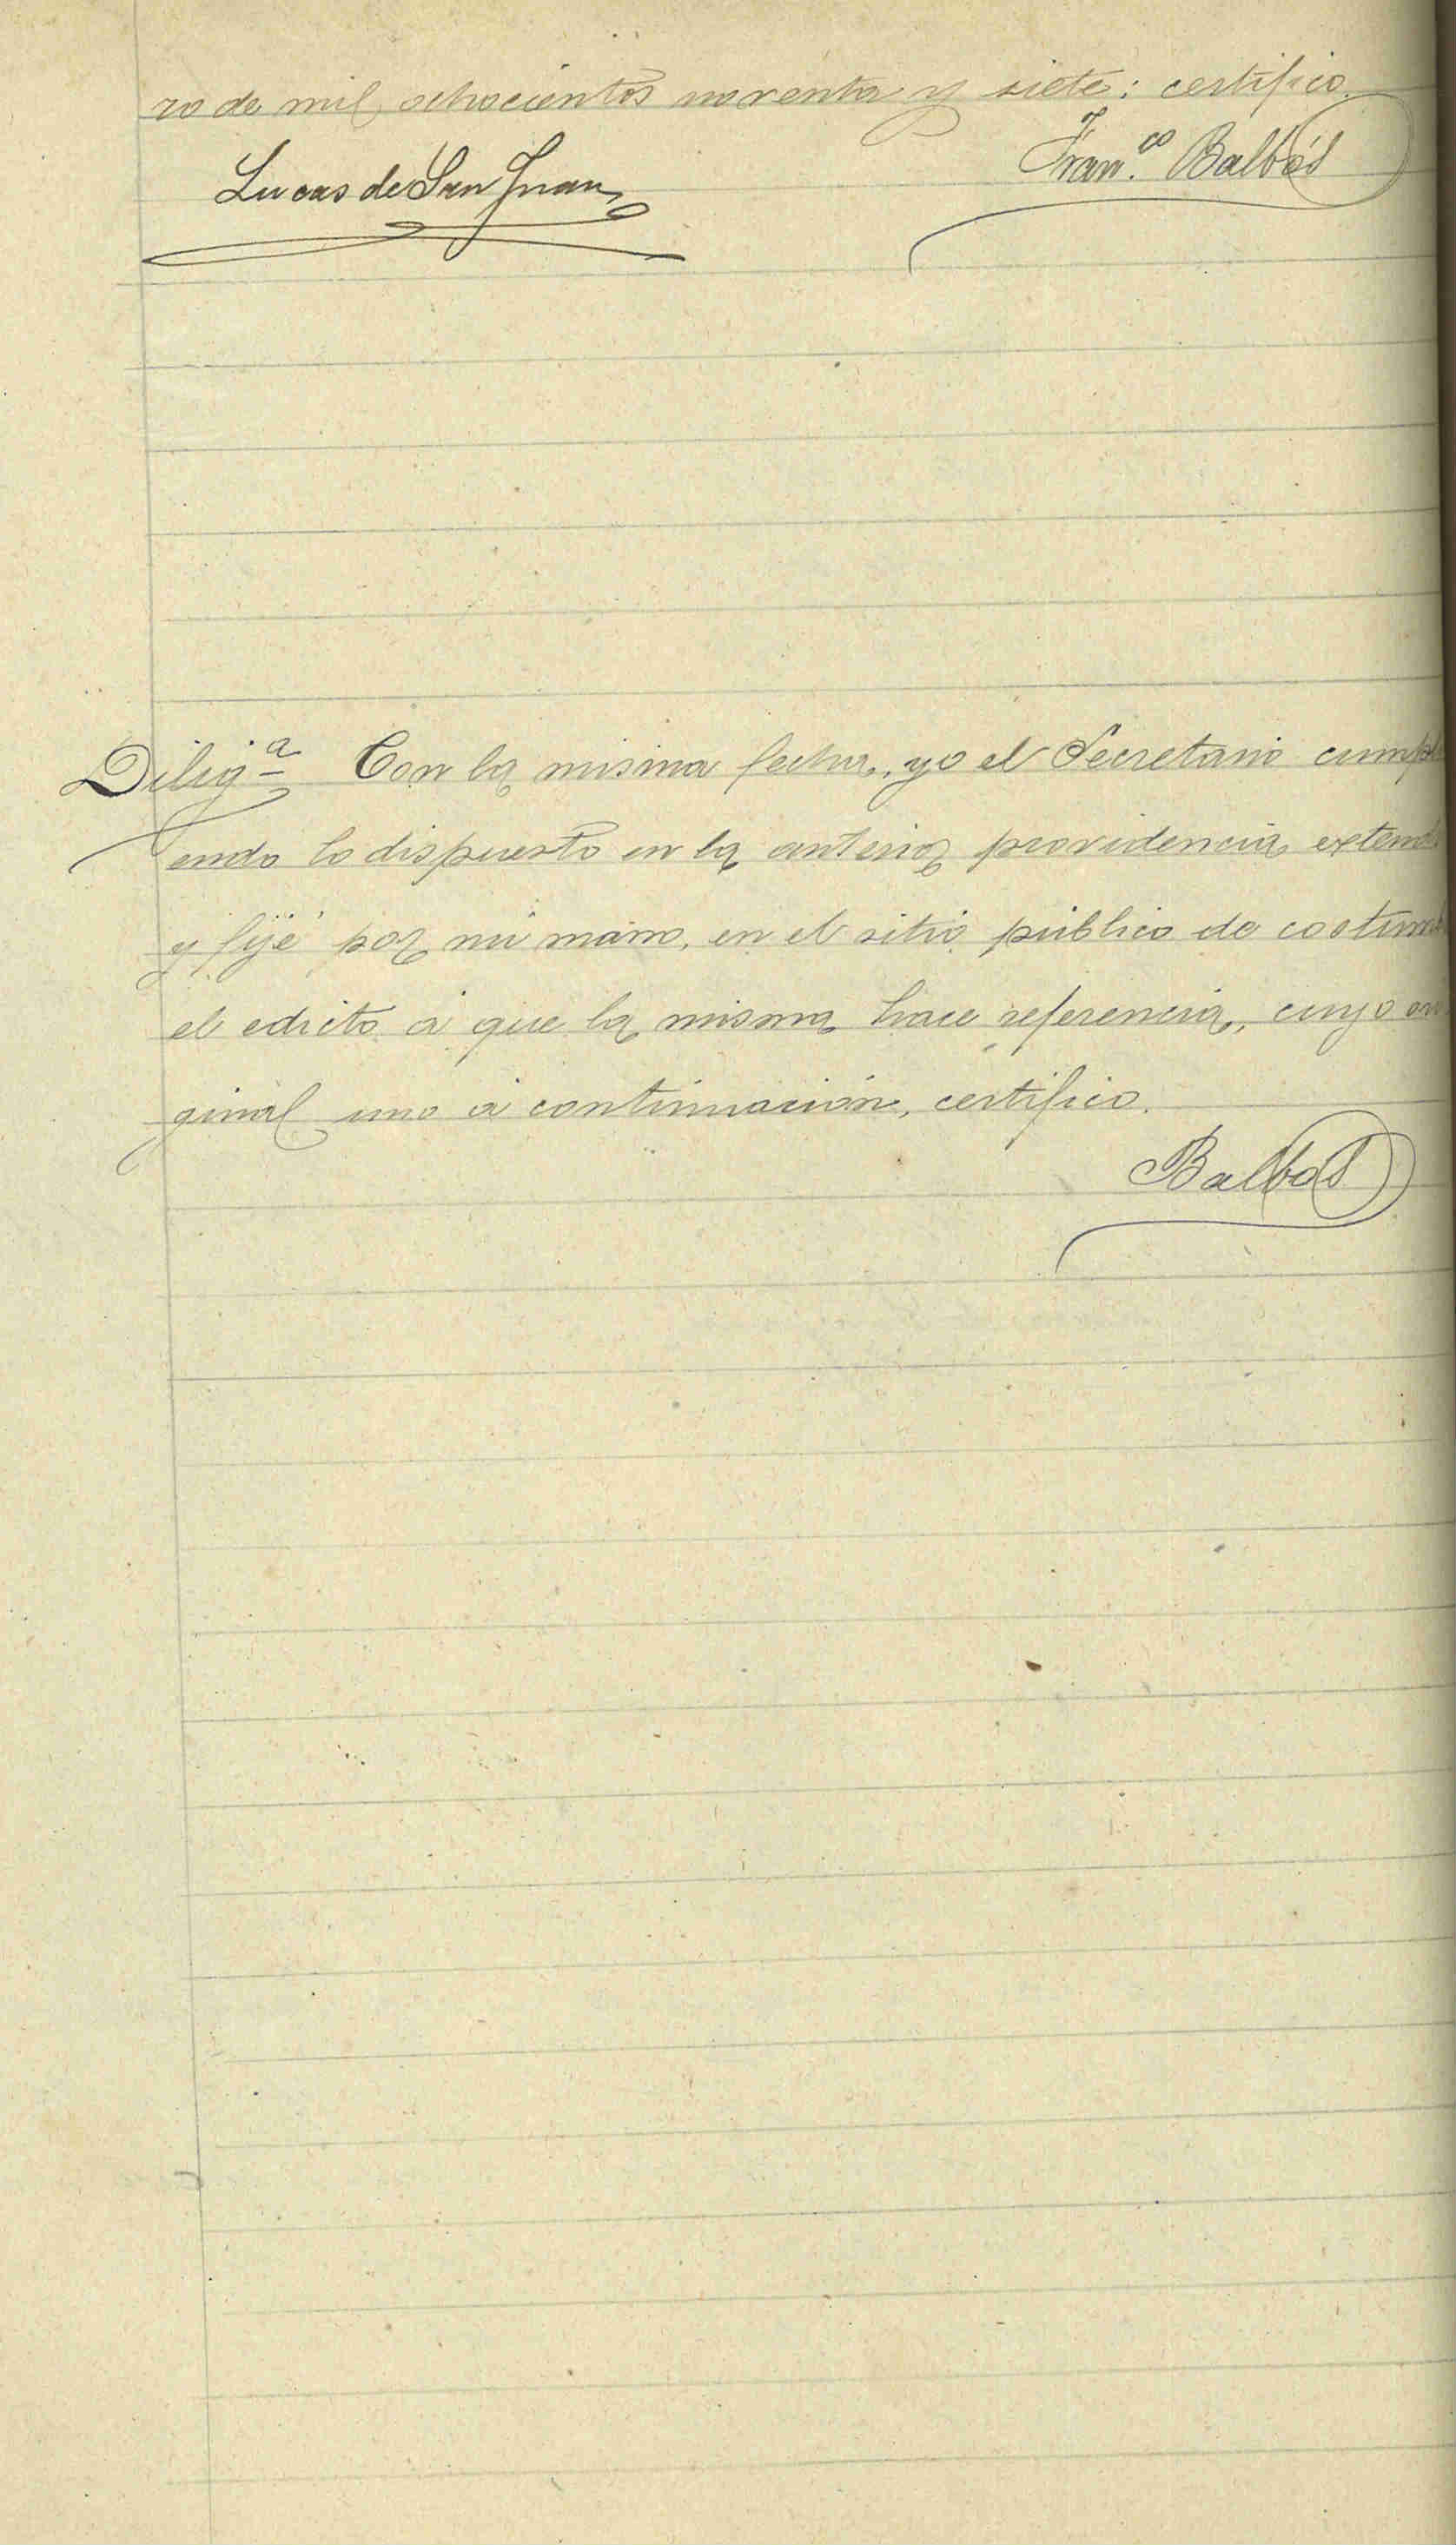 ro de mil ochocientos noventa y siete: certifico.
Lucas de San Juan
Fran.co Balbás
Dilig.a Con la misma fecha, yo el Secretario cumpli
endo lo dispuesto en la anterior providencia extendí
y fijé por mi mano, en el sitio público de costumb
el edicto á que la misma hace referencia, cuyo ori
ginal uno á continuación, certifico.
Balbás